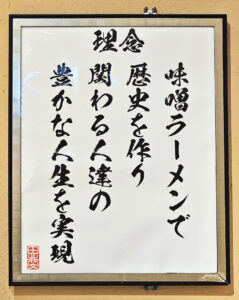 理念
味噌ラーメンで
歴史を作り
関わる人達の
豊かな人生を実現